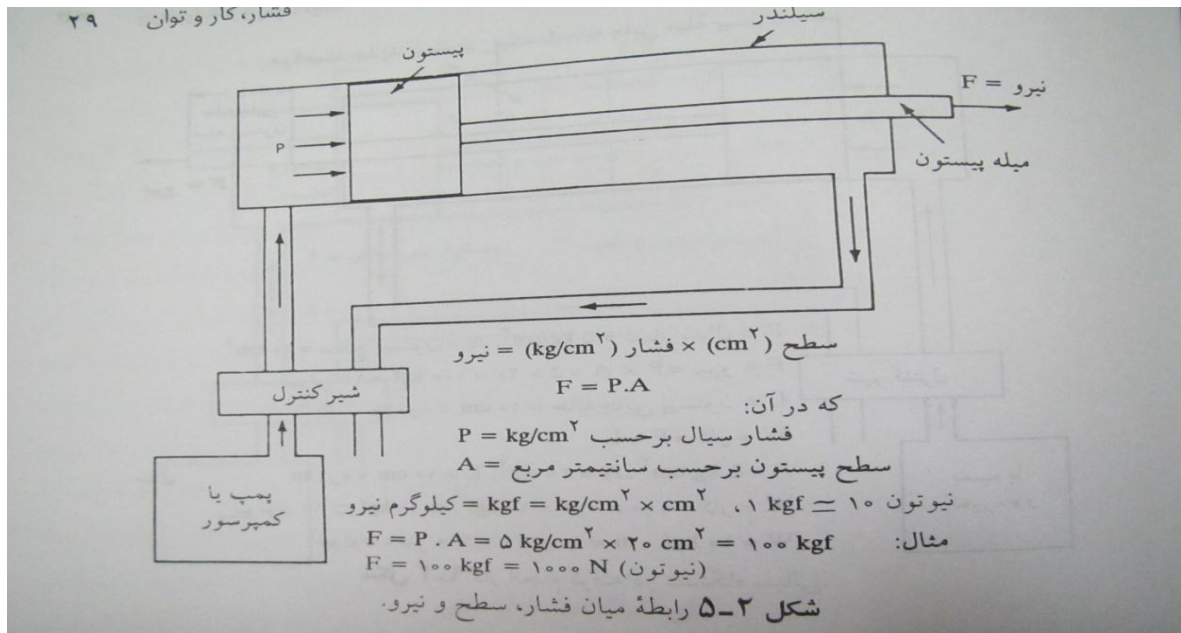 ۲۹ فشار، کار و توان
سیلندر
پیستون
نیرو = F
P
میله پیستون
سطح (cm۲) × فشار (kg/cm۲) = نیرو
شیر کنترل
F = P.A
که در آن:
فشار سیال برحسب P = kg/cm۲
سطح پیستون برحسب سانتیمتر مربع = A
پمپ یا
کمپرسور
نیوتون ۱۰ ≃ ۱ kgf ، kgf = kg/cm۲ × cm۲ = کیلوگرم نیرو
مثال: F = P . A = ۵ kg/cm۲ × ۲۰ cm۲ = ۱۰۰ kgf
F = ۱۰۰ kgf = ۱۰۰۰ N (نیوتون)
شکل ۲-۵ رابطهٔ میان فشار، سطح و نیرو.